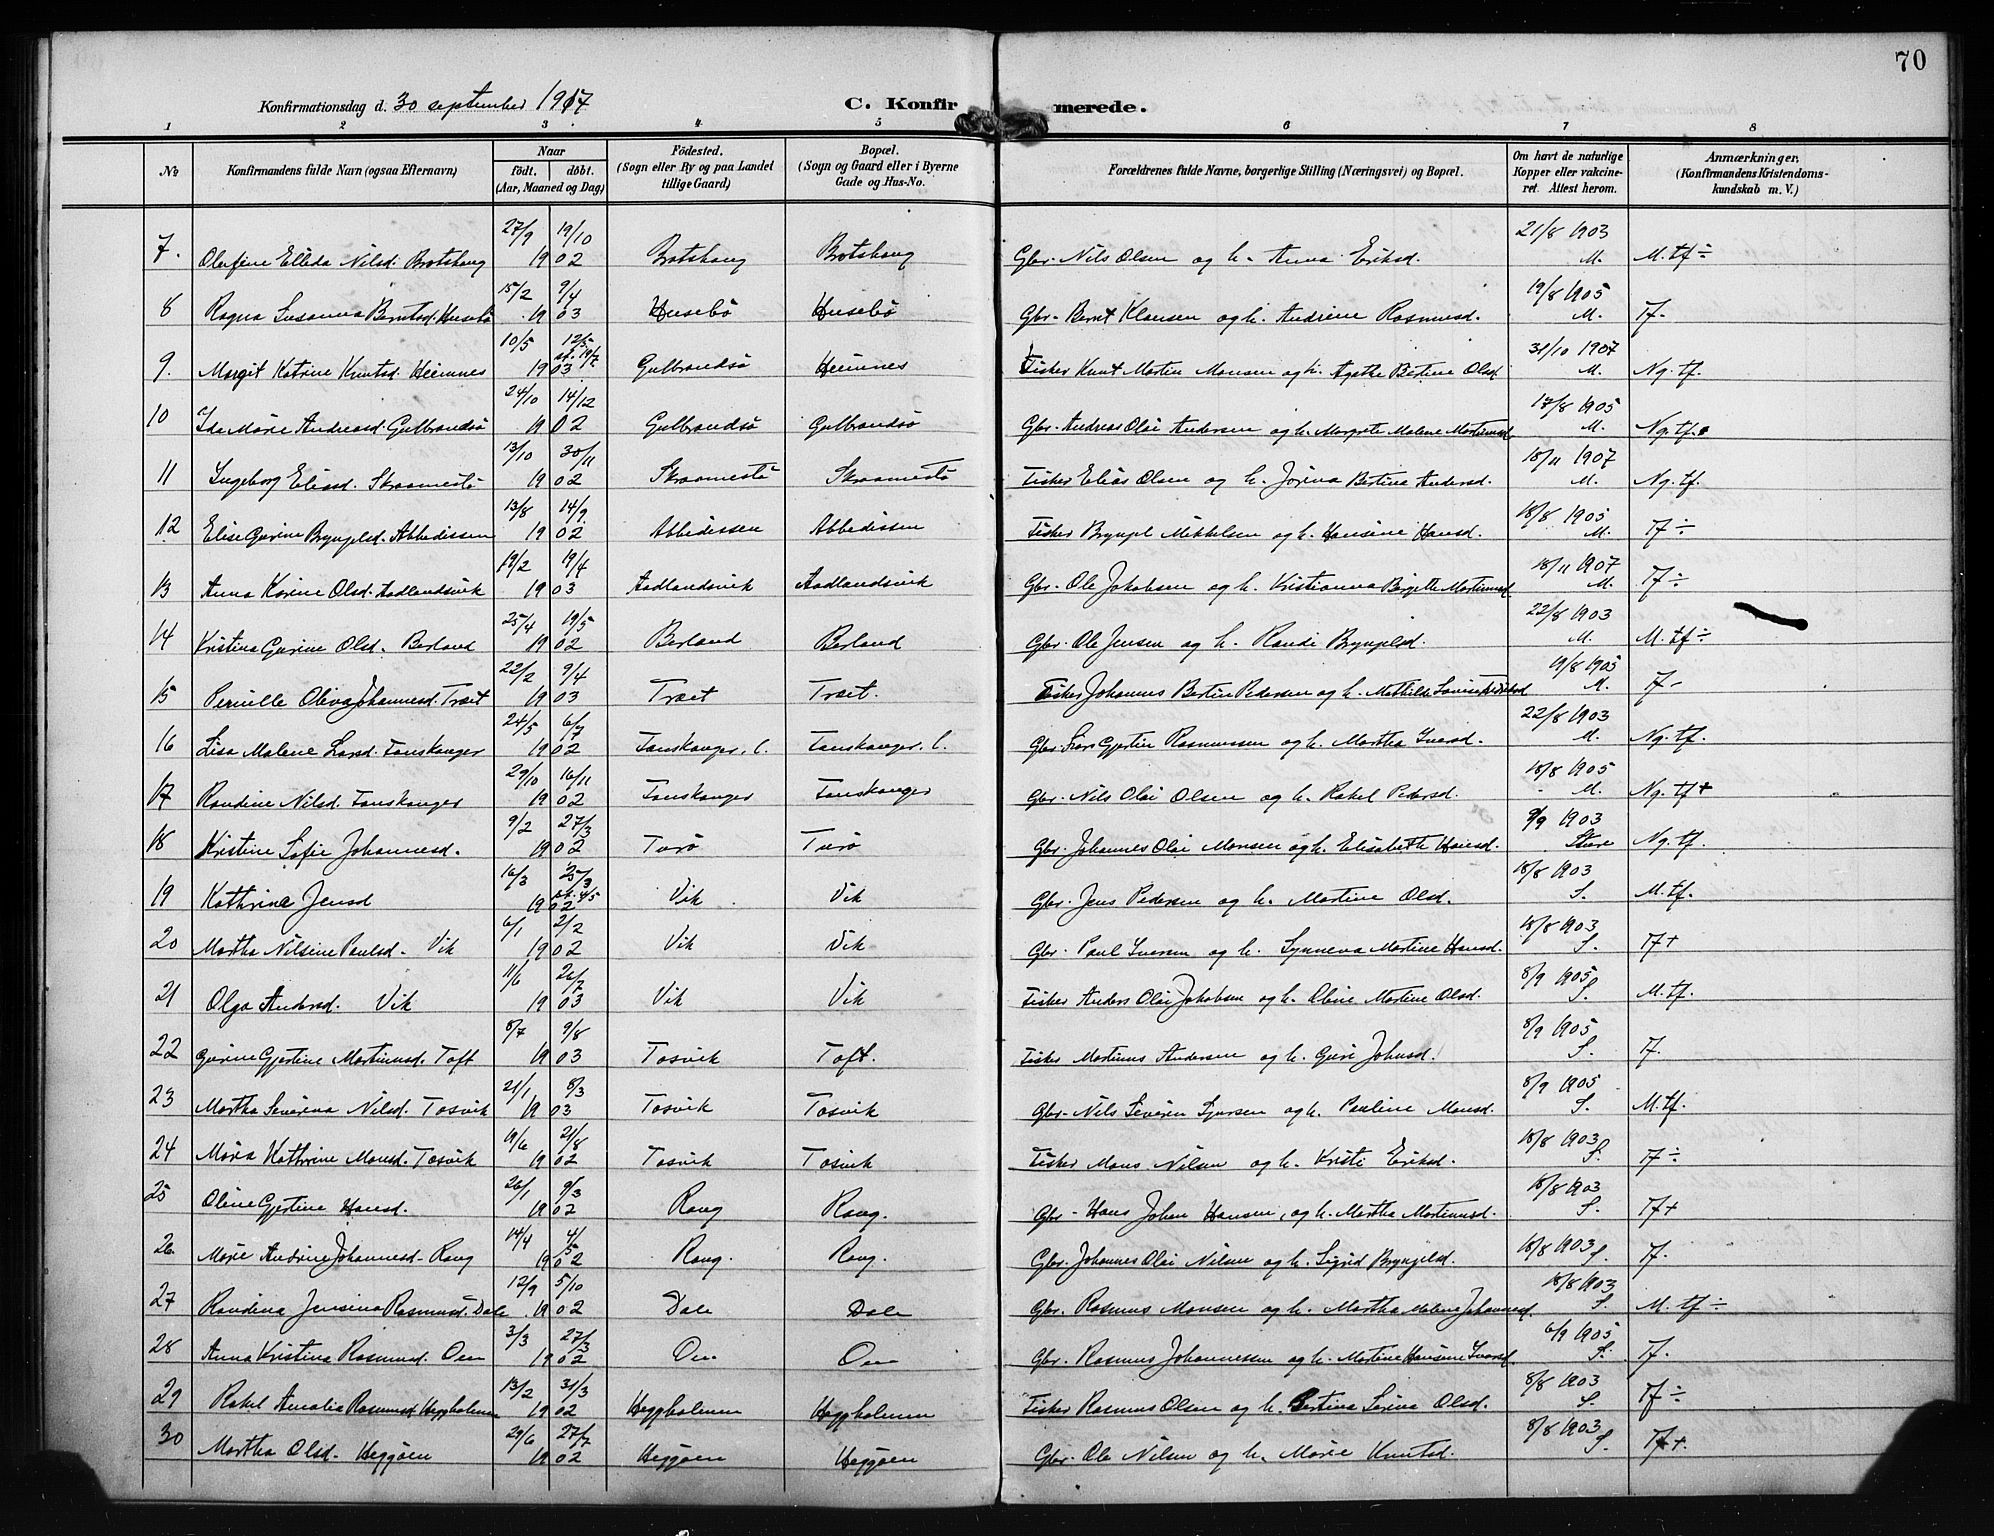 70
Konfirmationsdag d. 30 september 1917
C. Konfirmerede.
1 2 3 4 5 6 7 8
No Konfirmandens fulde Navn (ogsaa Efternavn) Naar født. døbt. (Aar, Maaned og Dag) Fødested. (Sogn eller By og paa Landet tillige Gaard) Bopæl. (Sogn og Gaard eller i Byerne Gade og Hus-No. Forældrenes fulde Navne, borgerlige Stilling (Næringsvei) og Bopæl. Om havt de naturlige Kopper eller vakcineret. Attest herom. Anmærkninger. (Konfirmandens Kristendomskundskab m. V.)
7. Olefine Elleda Nilsd. Brotshaug 27/9 19/10 1902 Brotshaug Brotshaug Gbr. Nils Olsen og h. Anna Eriksd. 21/8 1903 M. M. tf ÷
8 Ragna Susanna Berntsd. Husebø 15/2 9/4 1903 Husebø Husebø Gbr. Bernt Klausen og h. Andrine Rasmusd. 19/8 1905 M. Tf-
9. Margit Katrine Knutsd. Heimnes 10/5 12/5 st. 19/7 1903 Gulbrandsø Heimnes Fisker Knut Martin Monsen og h. Agathe Bertine Olsd. 31/10 1907 M. Ng. tf.
10 Ida Marie Andreasd. Gulbrandsø 24/10 14/12 1902 Gulbrandsø Gulbrandsø Gbr. Andreas Olai Andersen og h. Margrete Malene Martinusd. 17/8 1905 M. Ng. tf.
11 Ingeborg Eliasd. Skraamestø 13/10 30/11 1902 Skraamestø Skraamestø Fisker Elias Olsen og h. Jorina Bertina Andersd. 18/11 1907 M. Ng. tf.
12 Elise Gurine Bryngelsd. Abbedissen 13/8 14/9 1902 Abbedissen Abbedissen Fisker Bryngel Mikkelsen og h. Hansine Hansd. 18/8 1905 M. Tf ÷
13 Anna Karine Olsd. Aadlandsvik 19/2 19/4 1903 Aadlandsvik Aadlandsvik Gbr. Ole Jakobsen og h. Kristianna Birgitte Martinusd. 18/11 1907 M. Tf ÷
14 Kristina Gurine Olsd. Berland 25/4 19/5 1902 Berland Berland Gbr. Ole Jensen og h. Randi Bryngelsd. 22/8 1903 M. M. tf ÷
15 Pernille Oliva Johannesd. Træet 22/2 9/4 1903 Træet Træet. Fisker Johannes Bertin Pedersen og h. Mathilde Lovise 19/8 1905 M. Tf-
16 Lisa Malene Larsd. Fonskanger 24/5 6/7 1902 Fonskanger, l. Fonskanger, l. Gbr. Lars Gjertin Rasmussen og h. Martha Ivarsd. 22/8 1903 M. Ng. tf.
17 Randine Nilsd. Fonskanger 29/10 16/11 1902 Fonskanger Fonskanger Gbr. Nils Olai Olsen og h. Rakel Pedersd. 18/8 1905 M. Ng. tf +
18 Kristine Sofie Johannesd. 9/2 27/3 1902 Turø Turø Gbr. Johannes Olai Monsen og h. Elisabeth Hansd. 9/9 1903 Sture Ng. tf.
19 Kathrine Jensd 16/3 25/3 st. 4/5 1902 Vik Vik Gbr. Jens Pedersen og h. Martine Olsd. 18/8 1903 S. M. tf.
20 Martha Nilsine Paulsd. Vik 6/1 2/2 1902 Vik Vik Gbr. Paul Iversen og h. Synneva Martine Hansd. 18/8 1903 S. Tf +
21 Olga Andersd. Vik 11/6 26/7 1903 Vik Vik Fisker Anders Olai Jakobsen og h. Oline Martine Olsd. 8/9 1905 S. M. tf.
22 Gurine Gjertine Martinusd. Toft 8/7 9/8 1903 Tosvik Toft. Fisker Martinus Andersen og h. Guri Johnsd. 8/9 1905 S. Tf.
23 Martha Severina Nilsd. Tosvik 21/1 8/3 1903 Tosvik Tosvik Gbr. Nils Severin Sjursen og h. Pauline Monsd. 8/9 1905 S. M. tf.
24 Maria Kathrine Monsd. Tosvik 19/6 21/8 1902 Tosvik Tosvik Fisker Mons Nilsen og h. Kristi Eriksd. 18/8 1903 S. Tf ÷
25 Oline Gjertine Hansd. 26/1 9/3 1902 Rong Rong. Gbr. Hans Johan Hansen, og h. Martha Martinusd. 18/8 1903 S. Tf +
26 Marie Andrine Johannesd. Rong 14/4 4/5 1902 Rong. Rong. Gbr. Johannes Olai Nilsen og h. Sigrid Bryngelsd. 18/8 1903 S. Tf.
27 Randina Jensina Rasmusd. Dale 12/9 5/10 1902 Dale Dale Gbr. Rasmus Monsen og h. Martha Malene Johannesd 18/8 1903 S. M. tf ÷
28 Anna Kristina Rasmusd. Oen 3/3 27/3 1902 Oen Oen Gbr. Rasmus Johannessen og h. Martine Hansine Ivarsd. 6/9 1905 S. Tf.
29 Rakel Amalia Rasmusd Heggholmen 13/2 31/3 1902 Heggholmen Heggholmen Fisker Rasmus Olsen og h. Bertina Serina Olsd. 8/8 1903 S. Tf ÷
30 Martha Olsd. Heggøen 29/6 27/7 1902 Heggøen Heggøen Gbr. Ole Nilsen og h. Marie Knutsd. 8/8 1903 S. Tf +.